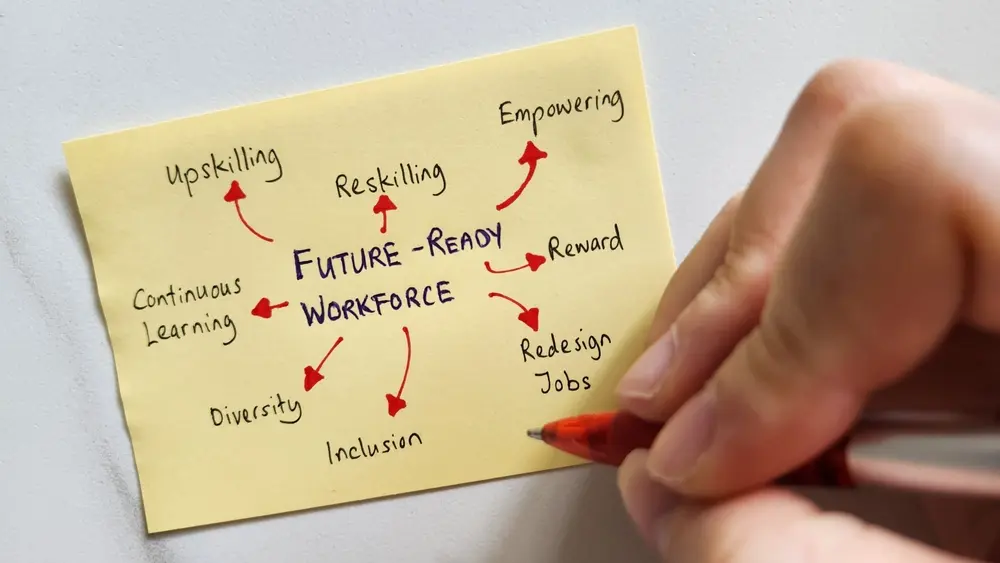 Empowering
Upskilling
Reskilling
FUTURE-READY
WORKFORCE
Reward
Continuous
Learning
Redesign
Jobs
Diversity
Inclusion